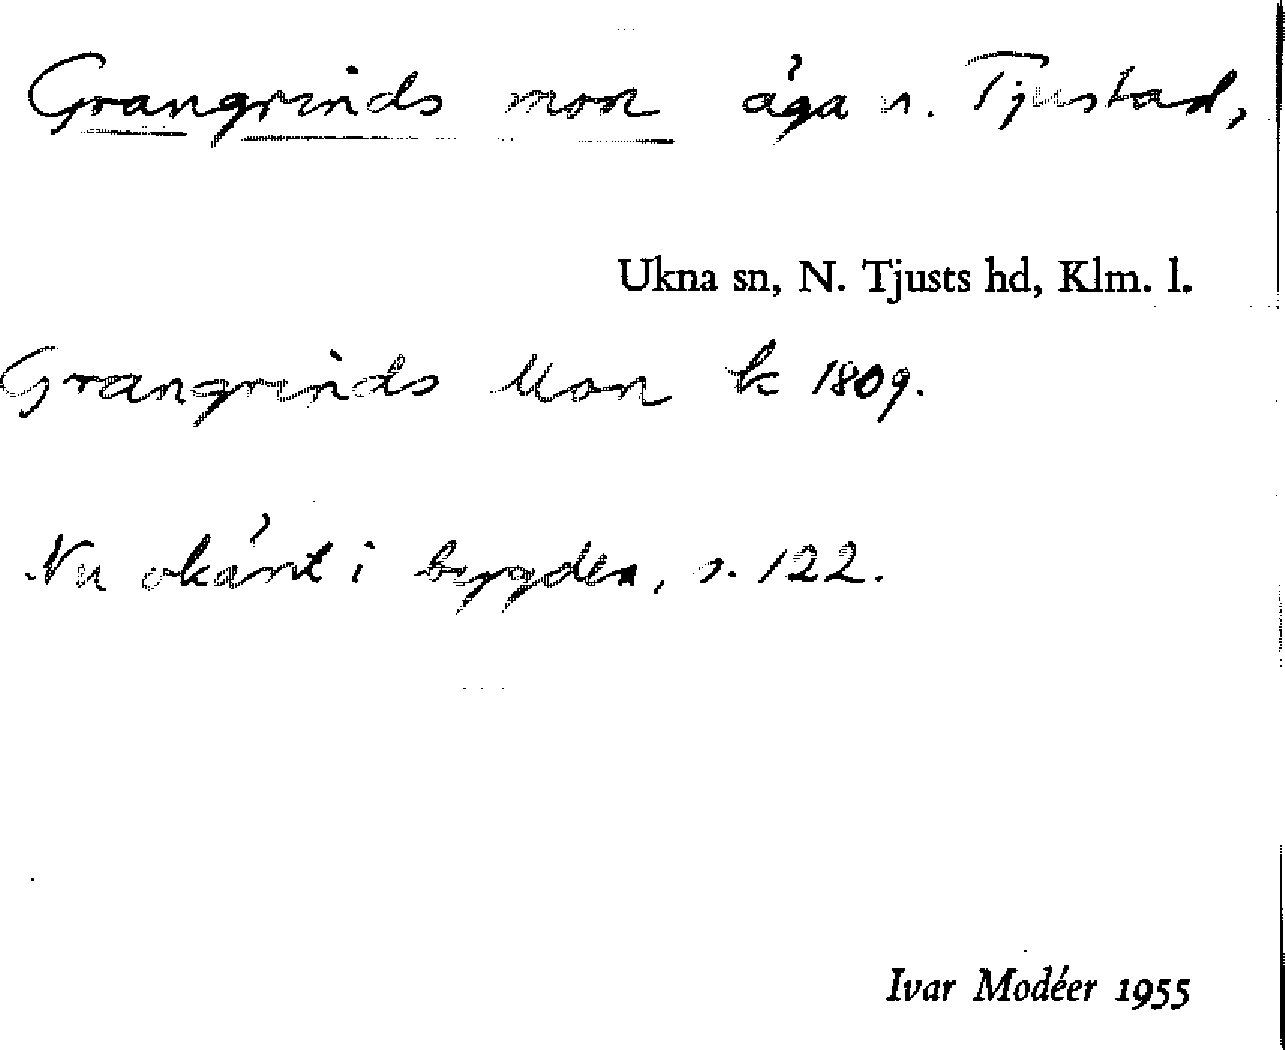 Grangrinds mon äga n. Tjustad,
Ukna sn, N. Tjusts hd, Klm. l.
Grangrinds Mon k 1809.
Nu okänt i bygden, s. 122.
Ivar Modéer 1955